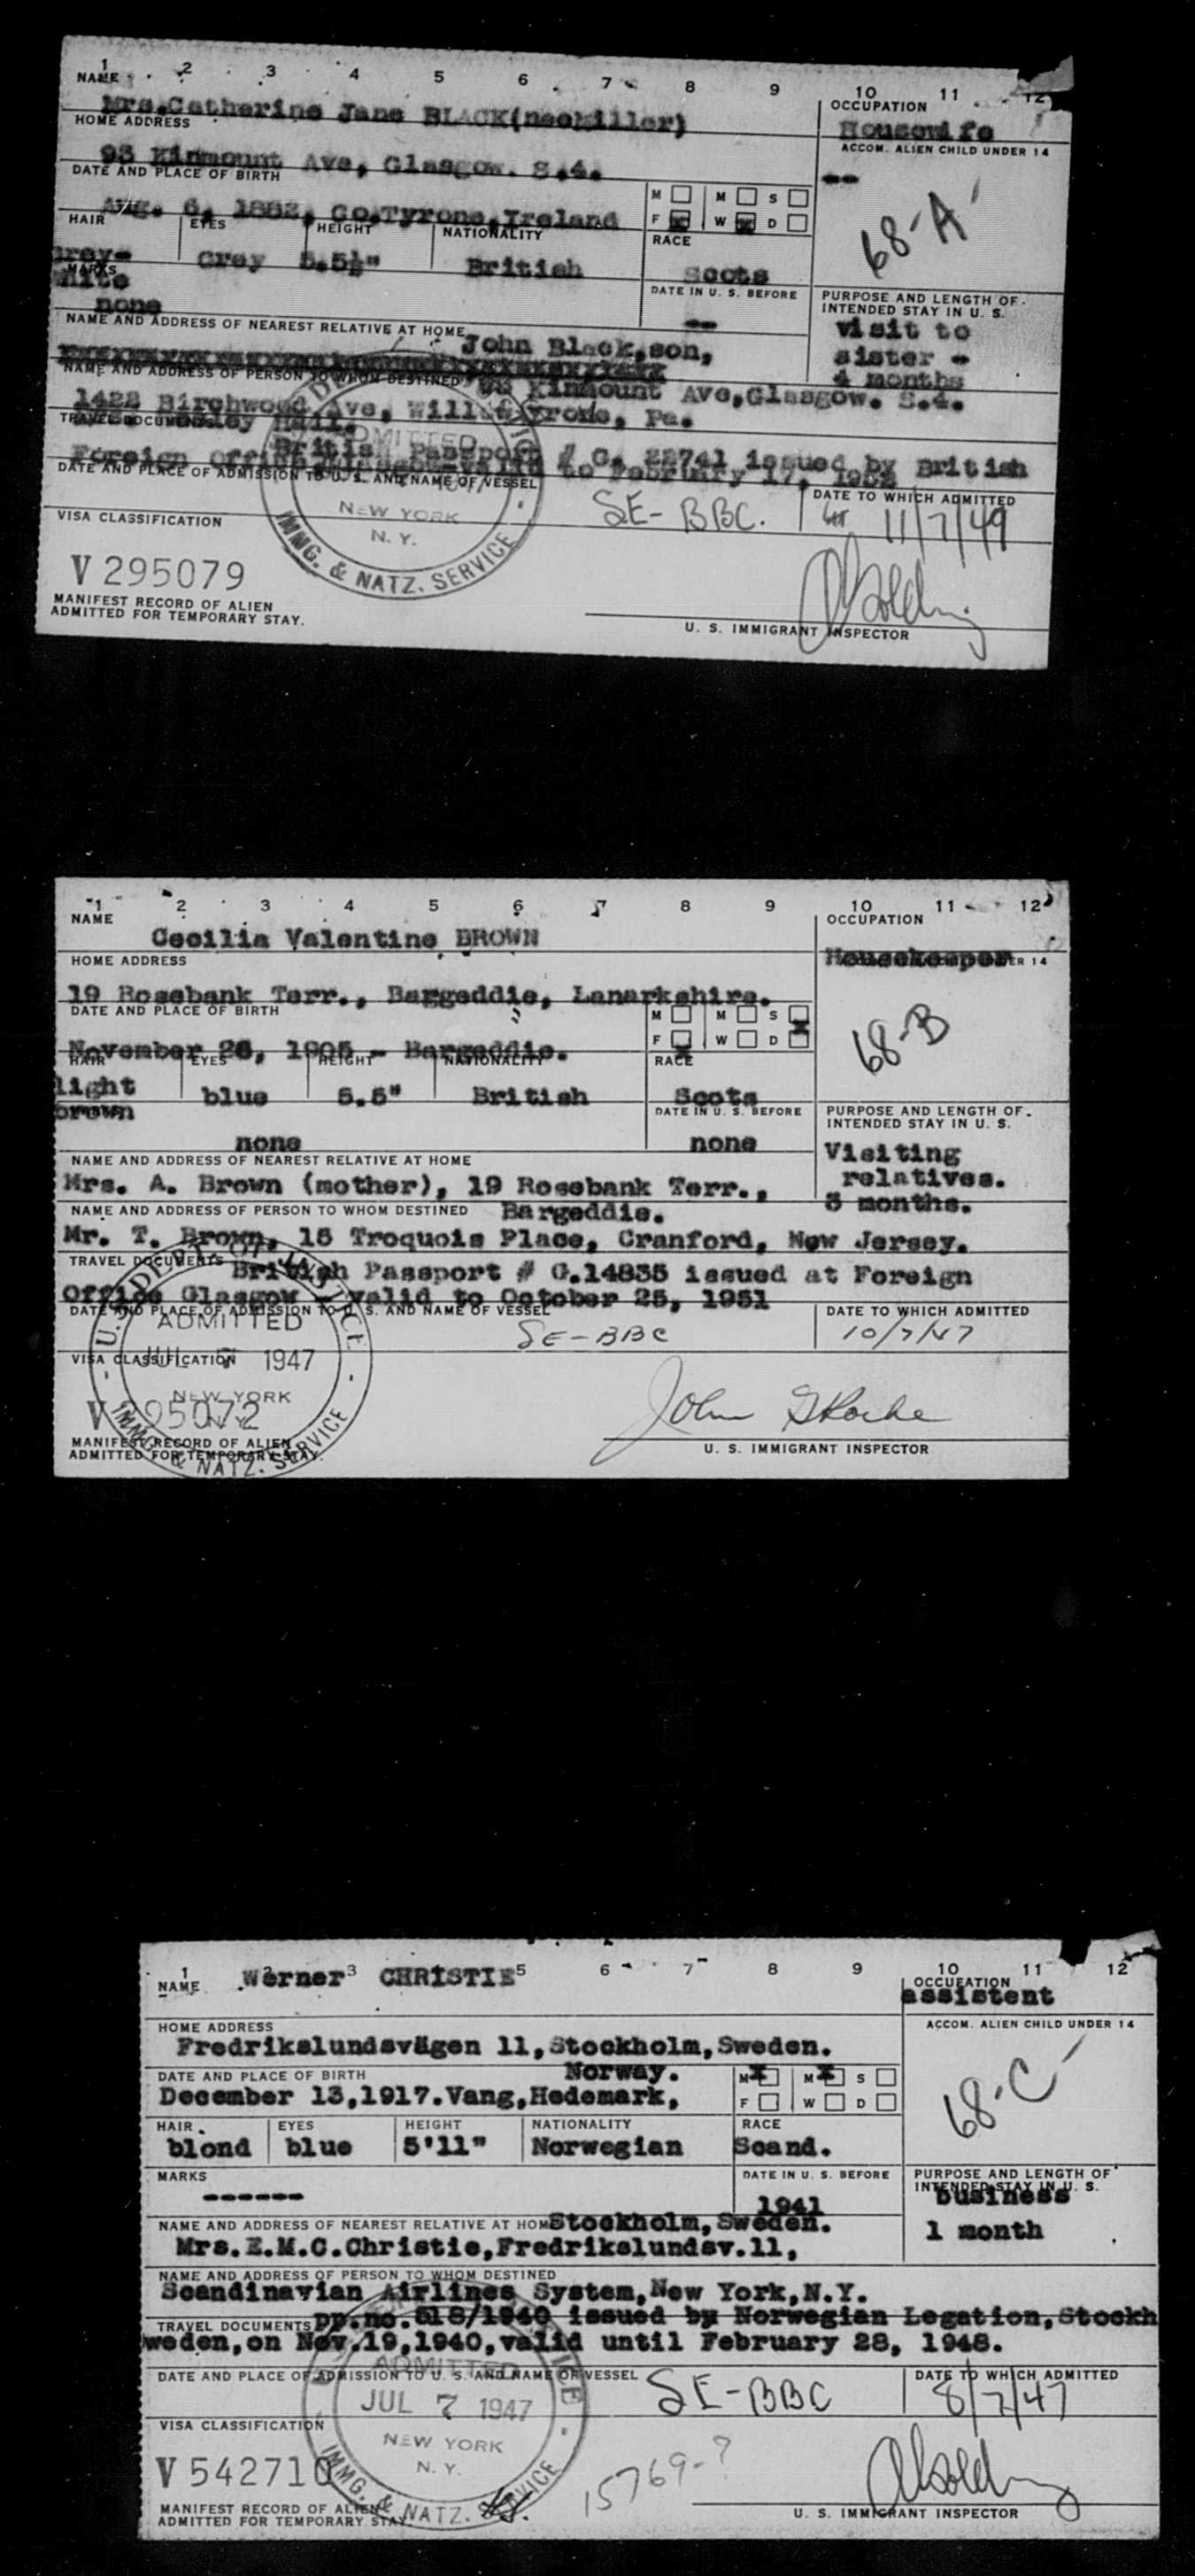 1 2 3 4 5 6 7 8 9 10 11 12
NAME
OCCUPATION
Mrs.Catherine Jane BLACK(neeMiller)
Housewife
HOME ADDRESS
ACCOM. ALIEN CHILD UNDER 14
93 Kinmount Ave, Glasgow. S.4.
--
DATE AND PLACE OF BIRTH
M M S
68-A
Aug. 6, 1882, Co.Tyrone,Ireland
F W D
HAIR EYES HEIGHT NATIONALITY RACE
Grey- Grey 5.5½" British Scots
White
MARKS
DATE IN U. S. BEFORE
PURPOSE AND LENGTH OF
INTENDED STAY IN U. S.
none
--
visit to
NAME AND ADDRESS OF NEAREST RELATIVE AT HOME
John Black,son,
sister -
4 months
NAME AND ADDRESS OF PERSON TO WHOM DESTINED
93 Kinmount Ave,Glasgow. S.4.
1422 Birchwood Ave, Pa.
TRAVEL DOCUMENTS
British Passport # C. 22741 issued by British
Foreign Office to February 17, 1952
DATE AND PLACE OF ADMISSION TO U. S. AND NAME OF VESSEL
DATE TO WHICH ADMITTED
SE-BBC.
11/7/49
ADMITTED
NEW YORK
N. Y.
IMMG. & NATZ. SERVICE
VISA CLASSIFICATION
V 295079
MANIFEST RECORD OF ALIEN
ADMITTED FOR TEMPORARY STAY.
U. S. IMMIGRANT INSPECTOR
1 2 3 4 5 6 7 8 9 10 11 12
NAME
OCCUPATION
Cecilia Valentine BROWN
HOME ADDRESS
Housekeeper
ER 14
19 Rosebank Terr., Bargeddie, Lanarkshire.
DATE AND PLACE OF BIRTH
M M S
F W D
68-B
November 26, 1905 - Bargeddie.
HAIR EYES HEIGHT NATIONALITY RACE
light blue 5.5" British Scots
brown
DATE IN U. S. BEFORE
PURPOSE AND LENGTH OF
INTENDED STAY IN U. S.
none none
Visiting
NAME AND ADDRESS OF NEAREST RELATIVE AT HOME
relatives.
Mrs. A. Brown (mother), 19 Rosebank Terr.,
3 months.
NAME AND ADDRESS OF PERSON TO WHOM DESTINED
Bargeddie.
Mr. T. Brown, 15 Troquois Place, Cranford, New Jersey.
TRAVEL DOCUMENTS
British Passport # C.14835 issued at Foreign
Office Glasgow - valid to October 25, 1951
DATE AND PLACE OF ADMISSION TO U. S. AND NAME OF VESSEL
DATE TO WHICH ADMITTED
SE-BBC
10/7/47
U.S. DEPT. OF JUSTICE
ADMITTED
VISA CLASSIFICATION
JUL 7 1947
NEW YORK
N. Y.
IMMG. & NATZ. SERVICE
V 295072
John
MANIFEST RECORD OF ALIEN
ADMITTED FOR TEMPORARY STAY.
U. S. IMMIGRANT INSPECTOR
1 2 3 5 6 7 8 9 10 11 12
NAME
Werner CHRISTIE
OCCUPATION
assistent
HOME ADDRESS
ACCOM. ALIEN CHILD UNDER 14
Fredrikslundsvägen 11,Stockholm,Sweden.
DATE AND PLACE OF BIRTH
Norway.
M M S
December 13,1917.Vang,Hedemark,
F W D
68-C
HAIR EYES HEIGHT NATIONALITY RACE
blond blue 5'11" Norwegian Scand.
MARKS
DATE IN U. S. BEFORE
PURPOSE AND LENGTH OF
INTENDED STAY IN U. S.
------
1941
business
NAME AND ADDRESS OF NEAREST RELATIVE AT HOM
Stockholm,Sweden.
1 month
Mrs.E.M.C.Christie,Fredrikslundsv.11,
NAME AND ADDRESS OF PERSON TO WHOM DESTINED
Scandinavian Airlines System,New York,N.Y.
TRAVEL DOCUMENTS
pp.no.518/1940 issued by Norwegian Legation,Stockh
weden,on Nov.19,1940,valid until February 28, 1948.
DATE AND PLACE OF ADMISSION TO U. S. AND NAME OF VESSEL
DATE TO WHICH ADMITTED
SE-BBC
8/7/47
ADMITTED
JUL 7 1947
NEW YORK
N. Y.
IMMG. & NATZ. SERVICE
VISA CLASSIFICATION
V 542710
15769-?
MANIFEST RECORD OF ALIEN
ADMITTED FOR TEMPORARY STAY.
U. S. IMMIGRANT INSPECTOR